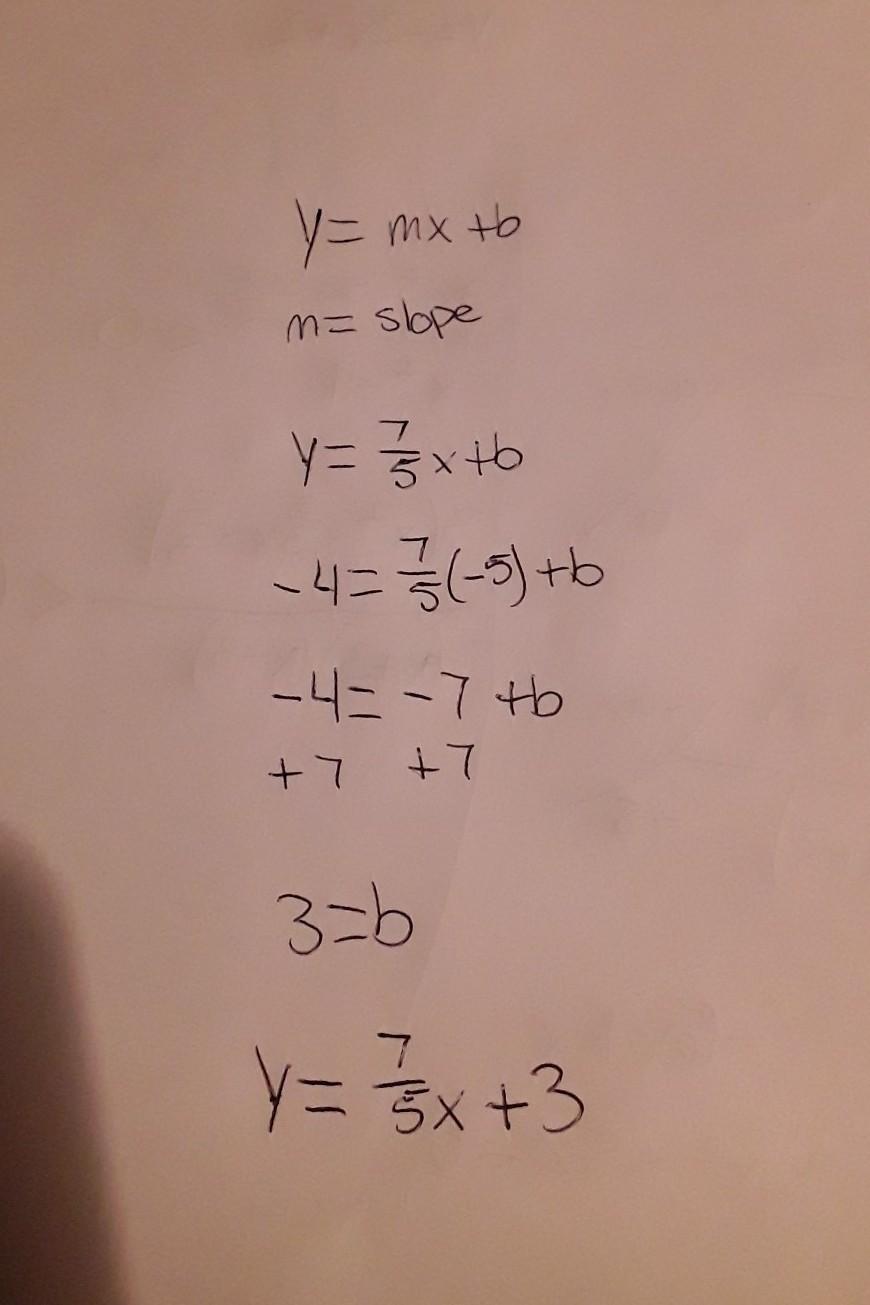 y = mx + b
m = slope
y = 7/5 x + b
-4 = 7/5 (-5) + b
-4 = -7 + b
+7 +7
3 = b
y = 7/5 x + 3